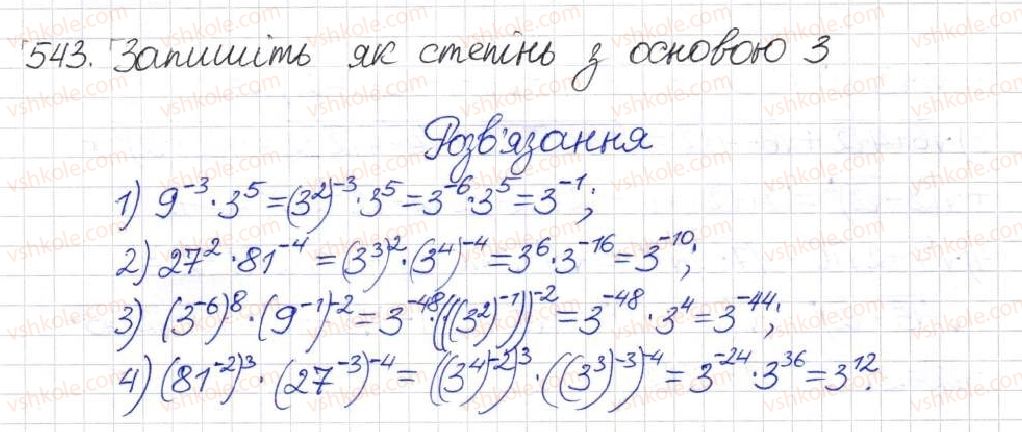 543. Запишіть як степінь з основою 3
Розв'язання
1) 9⁻³·3⁵=(3²)⁻³·3⁵=3⁻⁶·3⁵=3⁻¹;
2) 27²·81⁻⁴=(3³)²·(3⁴)⁻⁴=3⁶·3⁻¹⁶=3⁻¹⁰;
3) (3⁻⁶)⁸·(9⁻¹)⁻²=3⁻⁴⁸·(((3²)⁻¹))⁻²=3⁻⁴⁸·3⁴=3⁻⁴⁴;
4) (81⁻²)³·(27⁻³)⁻⁴=((3⁴)⁻²)³·((3³)⁻³)⁻⁴=3⁻²⁴·3³⁶=3¹².
vshkole.com